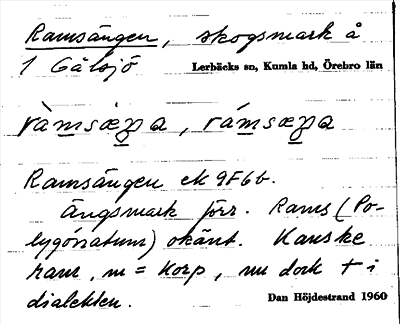 Ramsängen, skogsmark å
1 Gålsjö Lerbäcks sn, Kumla hd, Örebro län
ràmsæŋa, rámsæŋa
Ramsängen ek 9F6b.
Ängsmark förr. Rams (Po-
lygónatum) okänt. Kanske
ram, m = korp, nu dock † i
dialekten. Dan Höjdestrand 1960